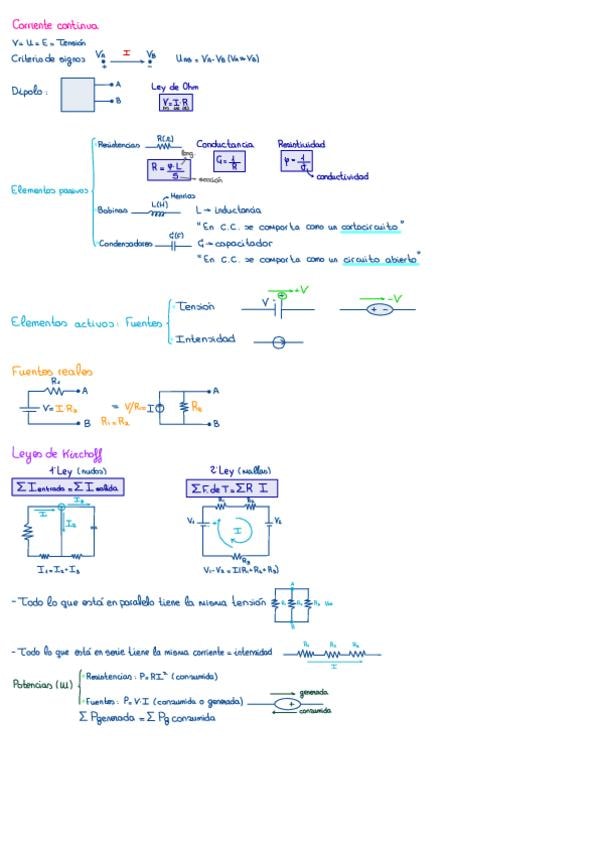 Corriente continua
V = U = E = Tensión
Criterio de signos VA + I VB - UAB = VA - VB (VA > VB)
Dipolo: A B
Ley de Ohm
V = I · R
Elementos pasivos
Resistencias R(Ω) Conductancia Resistividad
R = φ · L / S long. sección G = 1/R φ = 1/σ conductividad
Bobinas L(H) Henrios L → inductancia
"En C.C. se comporta como un cortocircuito"
Condensadores C(F) C → capacitador
"En C.C. se comporta como un circuito abierto"
Elementos activos: Fuentes
Tensión V + +V + - -V
Intensidad
Fuentes reales
R1 A B V = I R2 = V/R1 = I R1 = R2 R2 A B
Leyes de Kirchoff
1ª Ley (nudos) 2ª Ley (mallas)
ΣI entrada = ΣI salida ΣF. de T = ΣR I
I I2 I3 V1 R1 R2 V2 I R3
I1 = I2 + I3 V1 - V2 = I(R1 + R2 + R3)
- Todo lo que está en paralelo tiene la misma tensión A B
- Todo lo que está en serie tiene la misma corriente = intensidad I
Potencias (W)
Resistencias: P = RI² (consumida)
Fuentes: P = V · I (consumida o generada) + generada consumida
Σ Pgenerada = Σ Pg consumida